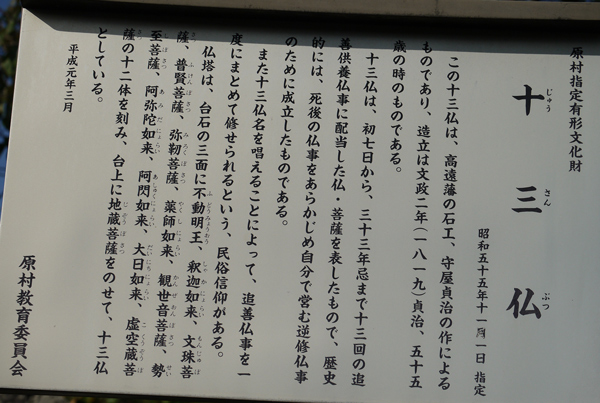 原村指定有形文化財
十三仏
じゅう さん ぶつ
昭和五十五年十一月一日 指定
この十三仏は、高遠藩の石工、守屋貞治の作による
ものであり、造立は文政二年(一八一九)貞治、五十五
歳の時のものである。
十三仏は、初七日から、三十三年忌まで十三回の追
善供養仏事に配当した仏・菩薩を表したもので、歴史
的には、死後の仏事をあらかじめ自分で営む逆修仏事
のために成立したものである。
また十三仏名を唱えることによって、追善仏事を一
度にまとめて修せられるという、民俗信仰がある。
仏塔は、台石の三面に不動明王、釈迦如来、文珠菩
薩、普賢菩薩、弥勒菩薩、薬師如来、観世音菩薩、勢
至菩薩、阿弥陀如来、阿閃如来、大日如来、虚空蔵菩
薩の十二体を刻み、台上に地蔵菩薩をのせて、十三仏
としている。
平成元年三月
原村教育委員会